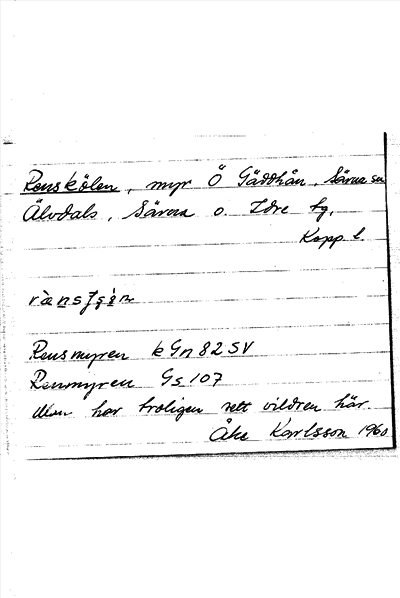 Renskölen, myr Ö Gäddhån, Särna sn
Älvdals, Särna o. Idre tg,
Kopp. l.
Rensmyren k Gn 82 SV
Renmyren Gs 107
Man har troligen sett vildren här.
Åke Karlsson 1960